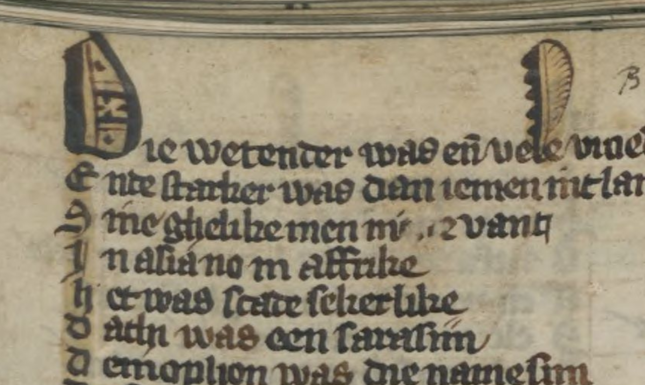 B
Die wetender was eñ vele vroe
Ende starker was dan iemen int lan
Sine ghelike men ni vant
In asia no in affrike
Het was scade sekerlike
dathi was een sarasijn
demophon was die name sijn